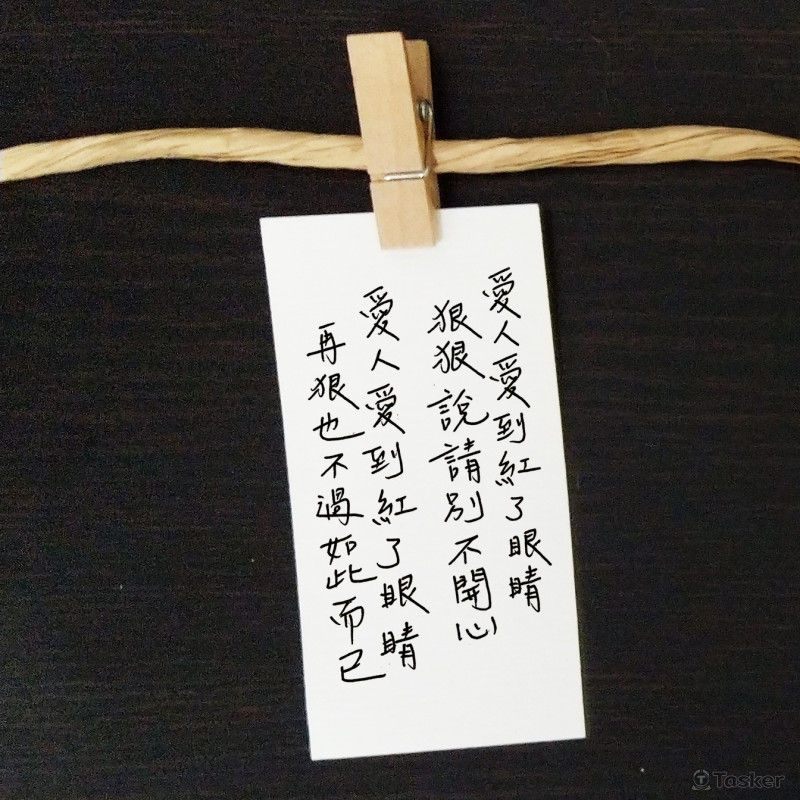 愛人愛到紅了眼睛
狠狠說請別不開心
愛人愛到紅了眼睛
再狠也不過如此而已
Tasker